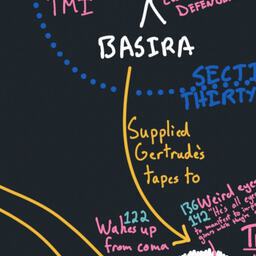 TMI
DEFENDER
BASIRA
SECTI
THIRTY
Supplied
Gertrude's
tapes to
122
Wakes up
from coma
136 Weird eyes
142 "It's all
to manifest to